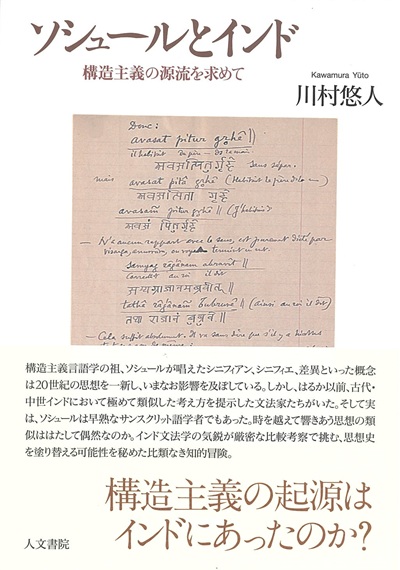 ソシュールとインド
構造主義の源流を求めて
Kawamura Yūto
川村悠人
Donc:
avasat pitur gṛhe ||
il habitait du père de la maison
अवसत्पितुर्गृहे sans séper.
mais avasat pitā gṛhe (Habitait le père de la m—)
अवसत्पिता गृहे
avasam pitur gṛhe || (j'habitais
अवसं पितुर्गृहे
— N'a aucun rapport avec le sens, est purement dicté par
visarga, anusvāra, ou voyelle terminant un mot.
samyag rājānam abravīt ||
correctᵗ au roi il dit
सम्यग्राजानमब्रवीत् ||
tathā rājānam (ainsi au roi il dit)
तथा राजानं
— Cela suffit absolument. Il va sans dire que d'il y a
構造主義言語学の祖、ソシュールが唱えたシニフィアン、シニフィエ、差異といった概念
は20世紀の思想を一新し、いまなお影響を及ぼしている。しかし、はるか以前、古代・
中世インドにおいて極めて類似した考え方を提示した文法家たちがいた。そして実
は、ソシュールは早熟なサンスクリット語学者でもあった。時を越えて響きあう思想の類
似ははたして偶然なのか。インド文法学の気鋭が厳密な比較考察で挑む、思想史
を塗り替える可能性を秘めた比類なき知的冒険。
構造主義の起源は
インドにあったのか?
人文書院